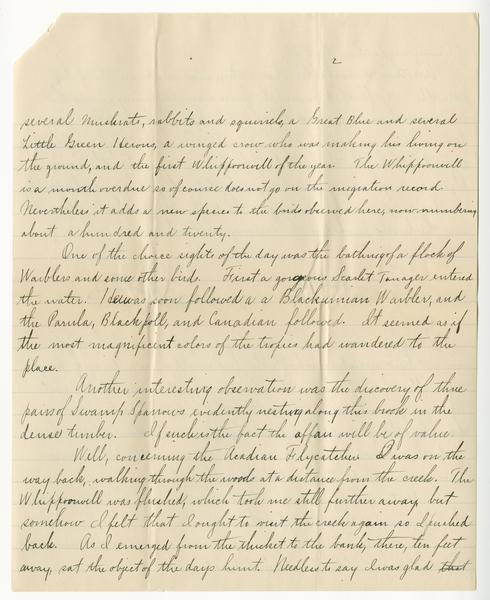 2
several muskrats, rabbits and squirrels, a Great Blue and several
Little Green Herons, a winged crow who was making his living on
the ground, and the first Whippoorwill of the year. The Whippoorwill
is a month overdue so of course does not go on the migration record.
Nevertheless it adds a new species to the birds observed here, now numbering
about a hundred and twenty.
One of the choice sights of the day was the bathing of a flock of
Warblers and some other birds. First a gorgeous Scarlet Tanager entered
the water. He was soon followed a a Blackburnean Warbler, and
the Parula, Blackpoll, and Canadian followed. It seemed as if
the most magnificent colors of the tropics had wandered to the
place.
Another interesting observation was the discovery of three
pairs of Swamp Sparrows evidently nesting along this brook in the
dense timber. If such is the fact the affair will be of value.
Well, concerning the Acadian Flycatcher. I was on the
way back, walking through the woods at a distance from the creek. The
Whippoorwill was flushed, which took me still further away, but
somehow I felt that I ought to visit the creek again so I pushed
back. As I emerged from the thicket to the bank, there, ten feet
away, sat the object of the days hunt. Needless to say I was glad that